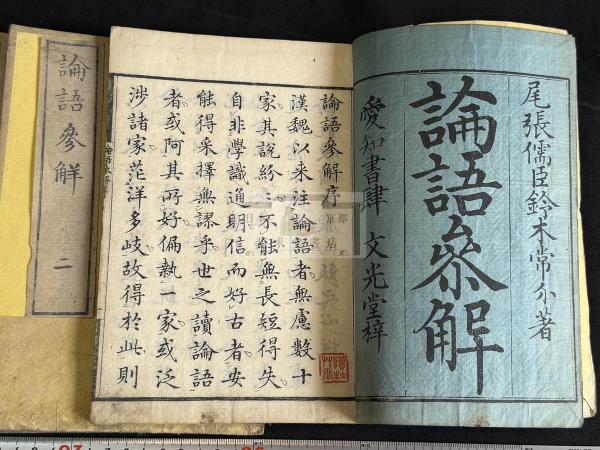 尾張儒臣鈴木常介著
論語叅解
愛知書肆 文光堂梓
論語參解序
漢魏以来注論語者無慮數十
家其説紛〻不能無長短得失
自非學識通明信而好古者安
能得采擇無謬乎世之讀論語
者或阿其所好偏執一家或泛
渉諸家茫洋多岐故得於此則
論語參解 二